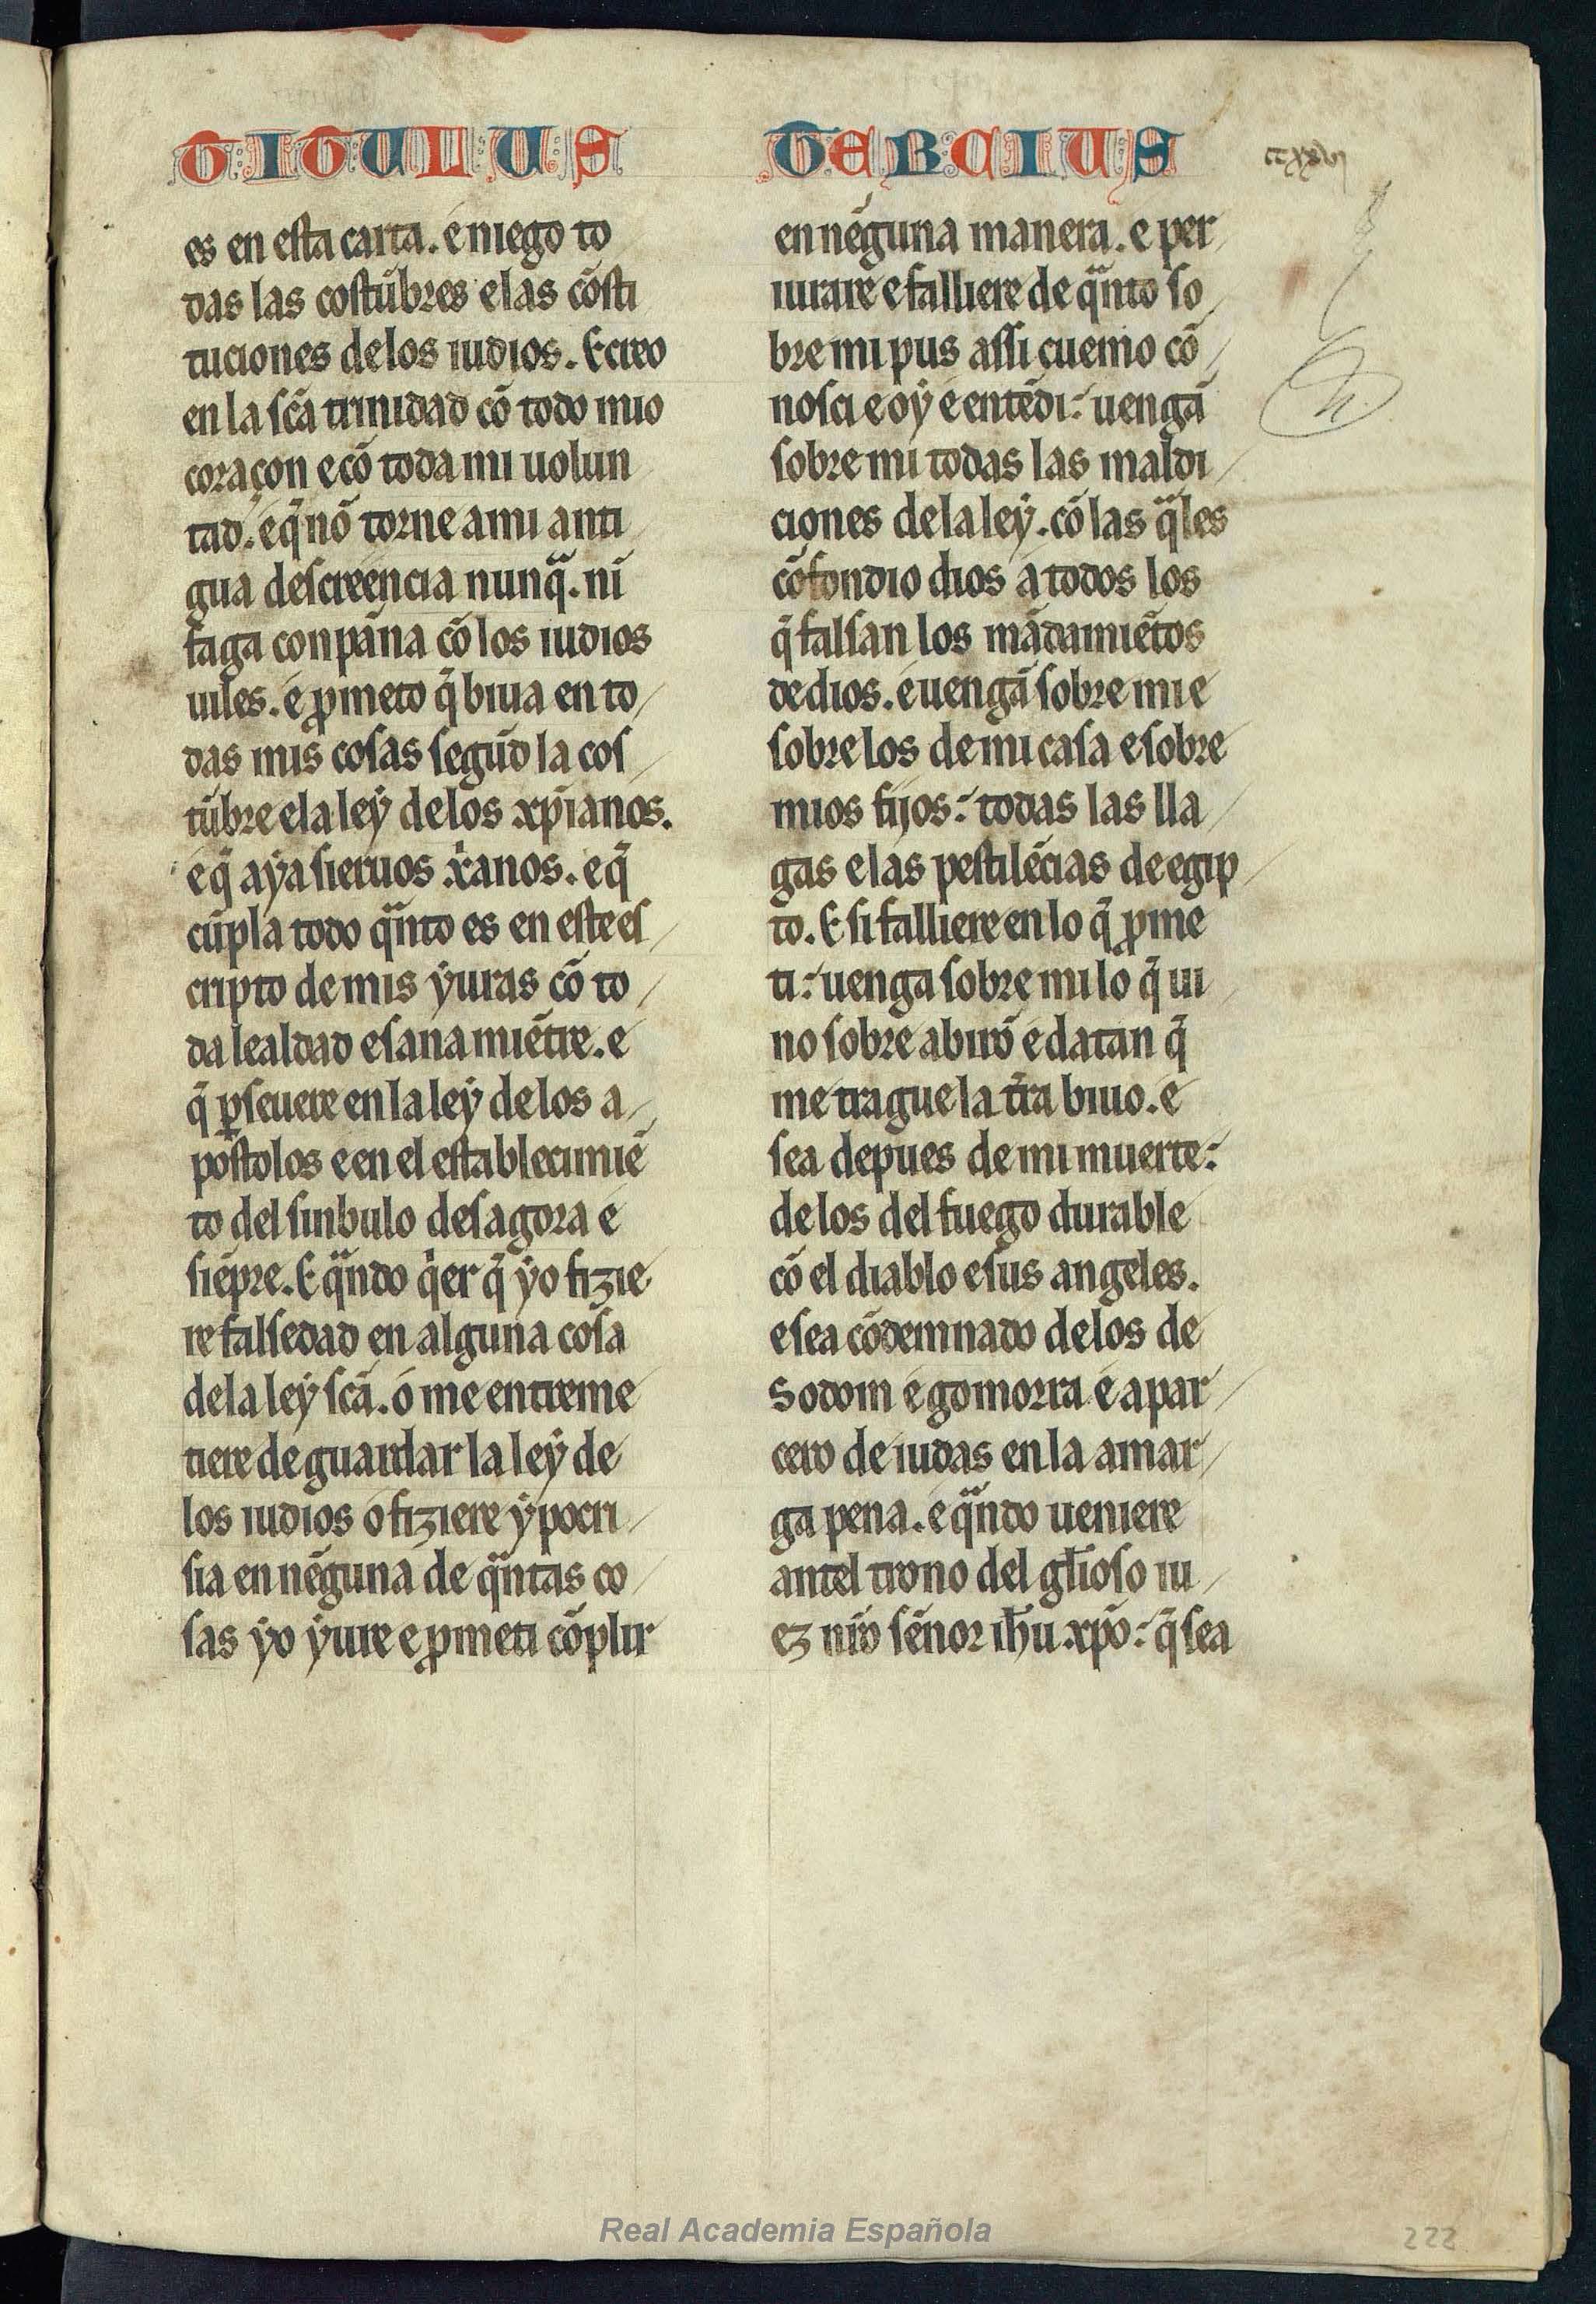 TITULUS TERCIUS
es en esta carta. e niego to
das las costũbres e las cõsti
tuciones delos iudios. E creo
en la sc̃a trinidad cõ todo mio
coraçon e cõ toda mi uolun
tad. e q̃ nõ torne a mi anti
gua descreencia nunq̃. ni
faga conpãna cõ los iudios
uiles. e ꝓmeto q̃ biua en to/
das mis cosas segũd la cos/
tũbre e la leẏ delos xp̃ianos.
e q̃ aẏa sieruos x̃anos. e q̃
cũpla todo q̃nto es en este es/
cripto de mis ẏuras cõ to/
da lealdad e sana miẽtre. e
q̃ ꝑseuere en la leẏ delos a/
postolos e en el establecimiẽ
to del sinbulo des agora e
siẽpre. E q̃ndo q̃er q̃ ẏo fizie
re falsedad en alguna cosa
dela leẏ sc̃a. o me entreme
tiere de guardar la leẏ de
los iudios o fiziere ẏpocri/
sia en nẽguna de q̃ntas co/
sas ẏo ẏure e ꝓmeti cõplir
en nẽguna manera. e per/
iurare e falliere de q̃nto so/
bre mi pus assi cuemo cõ/
nosci e oẏ e entẽdi: uengã
sobre mi todas las maldi/
ciones dela leẏ. cõ las q̃les
cõfondio dios a todos los
q̃ falsan los mãdamiẽtos
de dios. e uengã sobre mi e
sobre los de mi casa e sobre
mios fijos: todas las lla/
gas e las pestilẽcias de egip/
to. E si falliere en lo q̃ ꝓme
ti: uenga sobre mi lo q̃ ui/
no sobre abirõ e datan q̃
me trague la tr̃ra biuo. e
sea depues de mi muerte:
delos del fuego durable
cõ el diablo e sus angeles.
e sea cõdemnado delos de
Sodom e gomorra e apar/
cero de iudas en la amar/
ga pena. e q̃ndo ueniere
antel trono del gl̃ioso iu/
ez nr̃o sẽnor ih̃u .xp̃o: q̃ sea
Real Academia Española
222